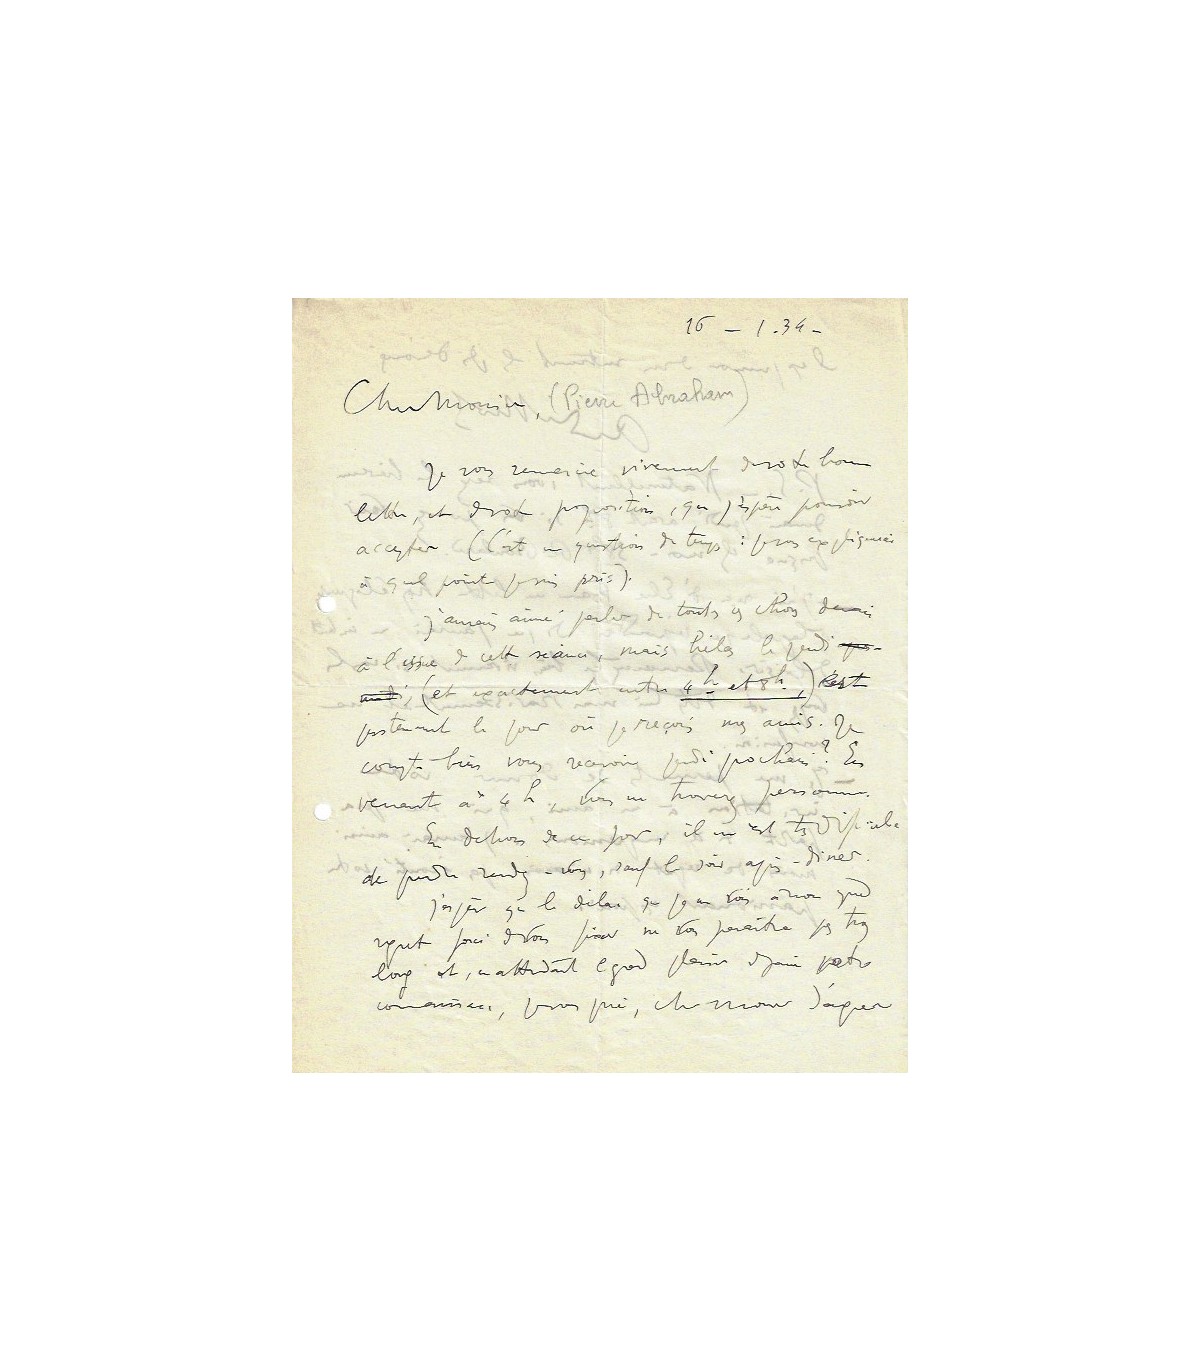 16 - 1.34 -
Cher Monsieur, (Pierre Abraham)
Je vous remercie vivement de votre bonne
lettre, et de votre proposition, que j'espère pouvoir
accepter (C'est une question de temps : je vous expliquerai
à quel point je suis pris).
J'aurais aimé parler de toutes ces choses
à l'issue de cette séance, mais hélas le jeudi
(et exactement entre 4h et 8h,) c'est
justement le jour où je reçois mes amis. Je
compte bien vous recevoir jeudi prochain? En
venant à 4h, vous ne trouverez personne.
En dehors de ce jour, il m'est très difficile
de prendre rendez-vous, sauf le soir après-dîner.
J'espère que le délai que je me vois à mon grand
regret forcé de vous fixer ne vous paraîtra pas trop
long et, en attendant le grand plaisir de faire votre
connaissance, je vous prie, cher monsieur d'agréer